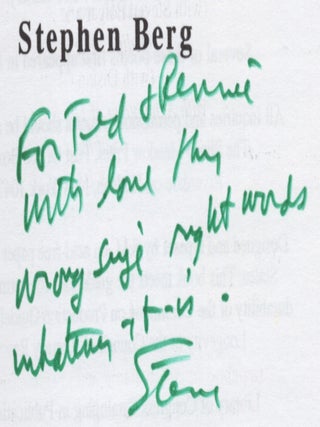 Stephen Berg
For Ted & Rennie
with love this
wrong size right words
whatever it is.
Steve